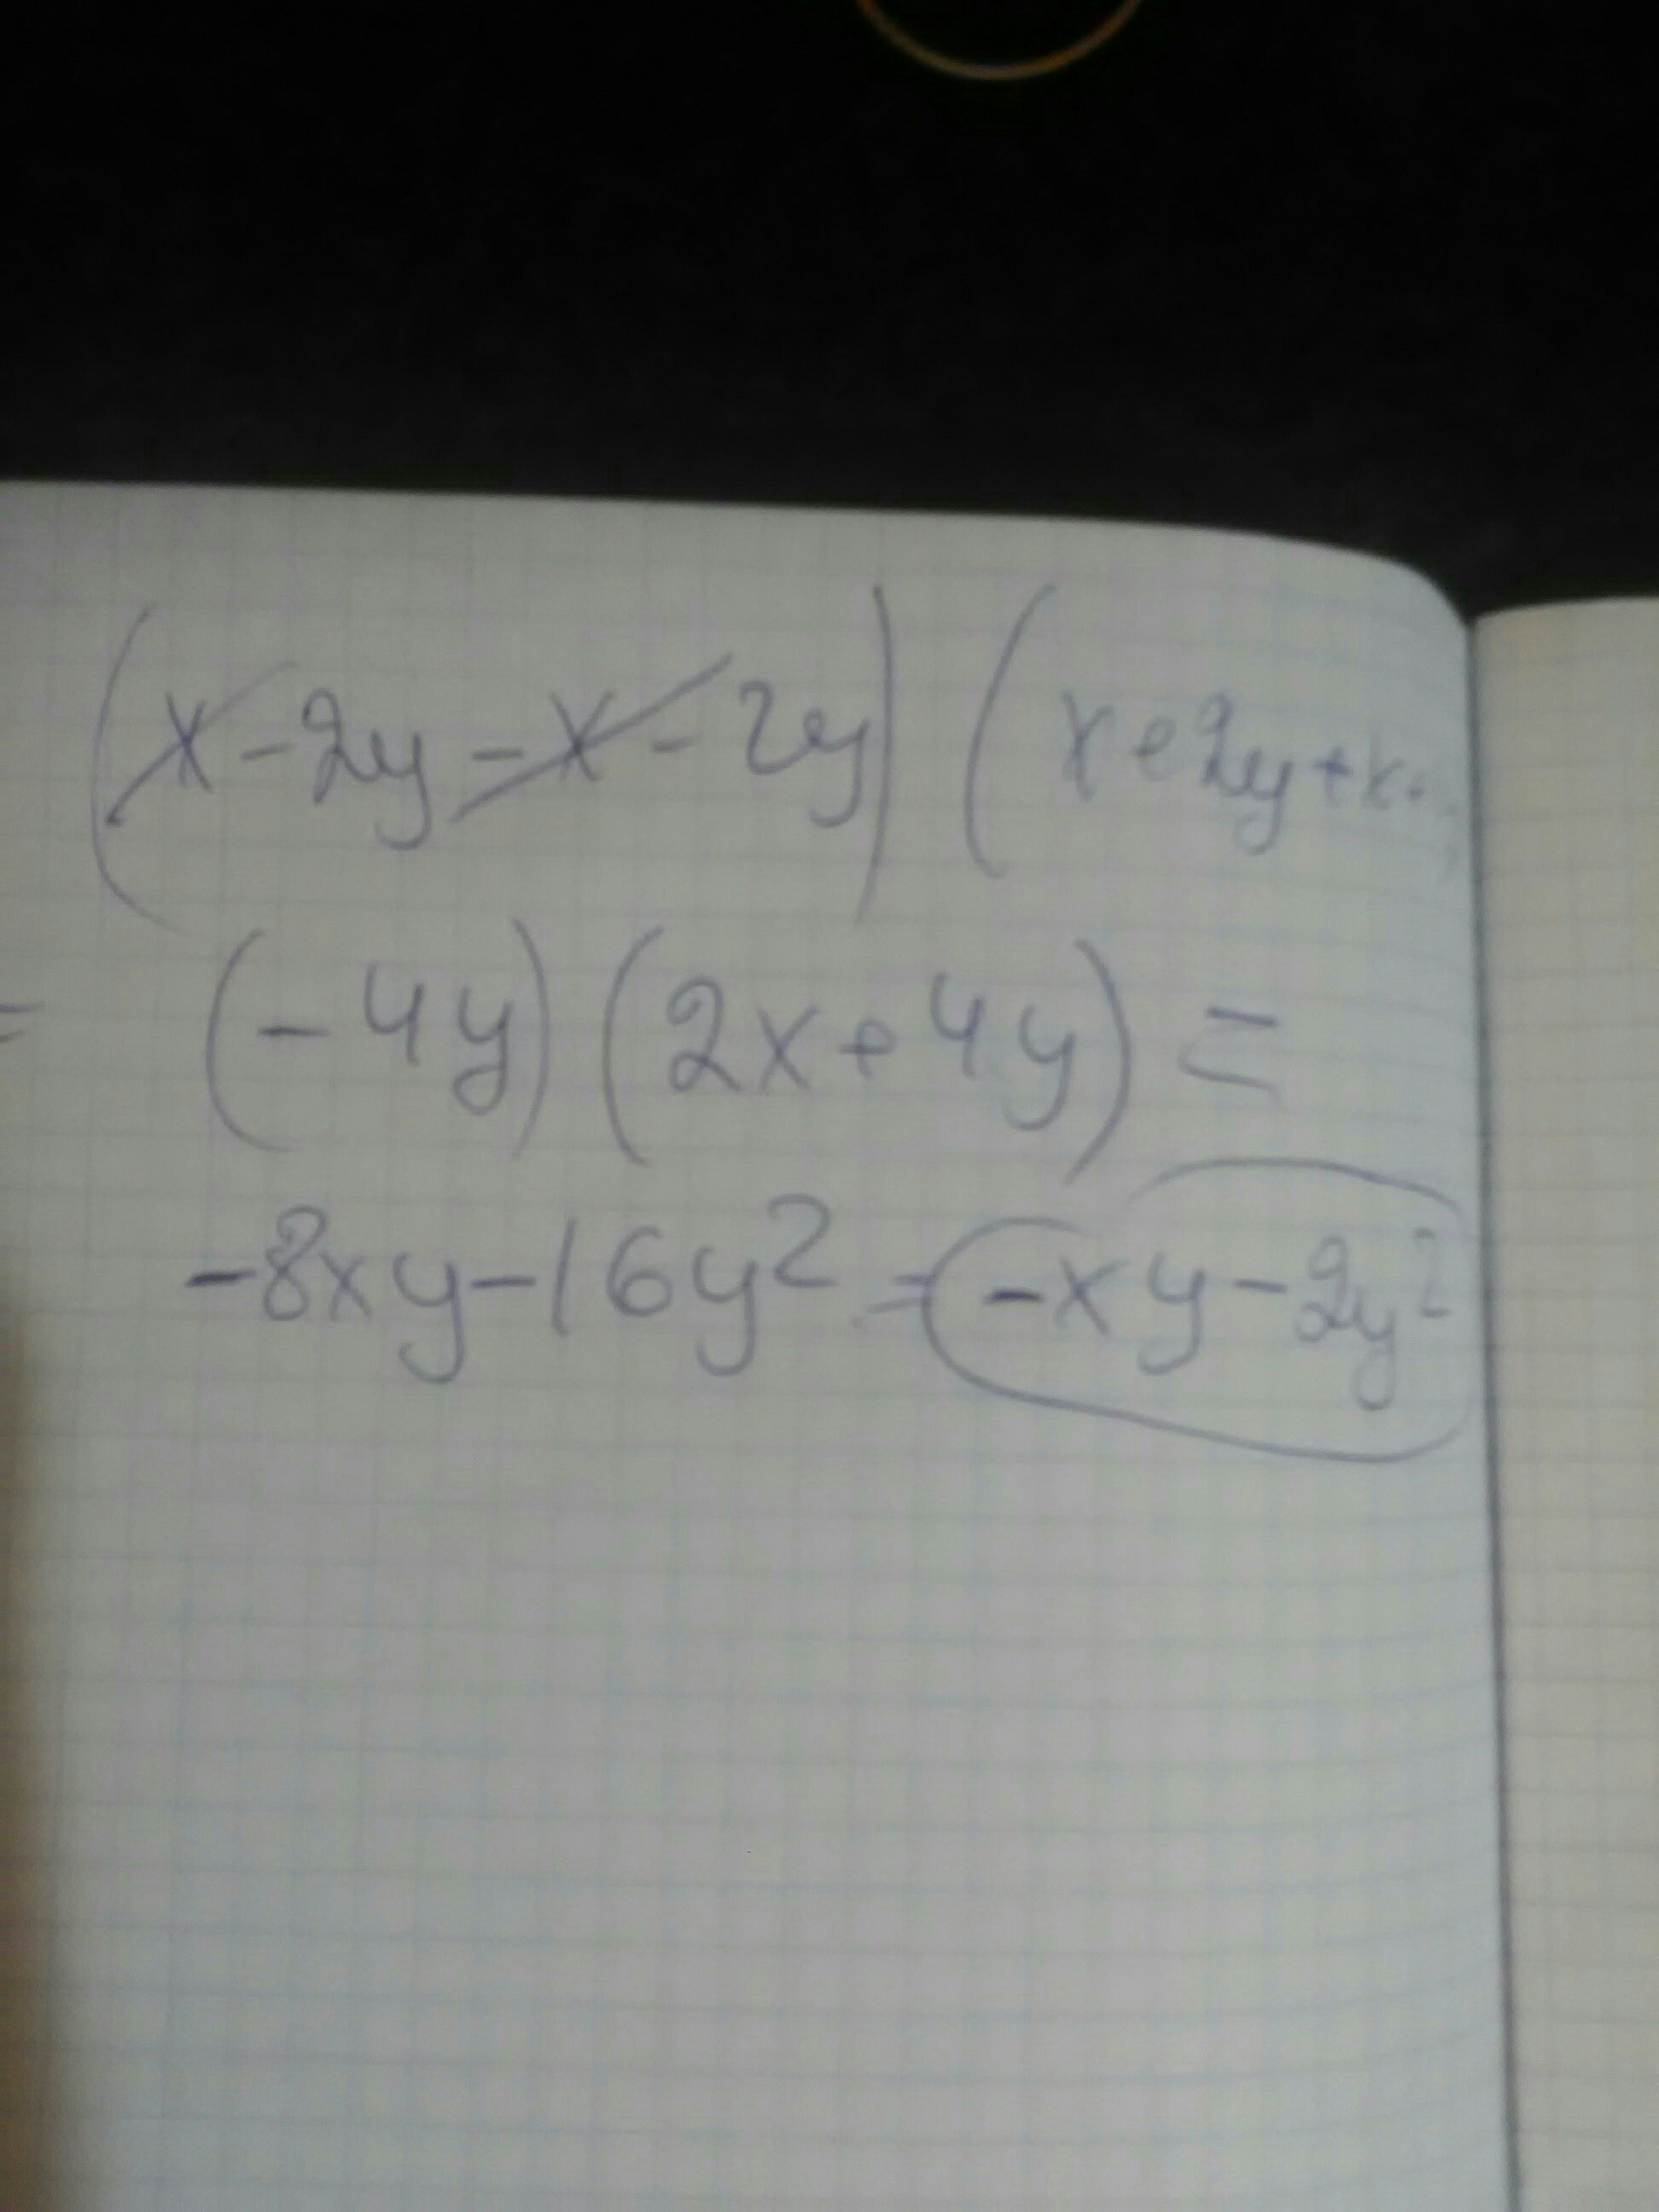 (x-2y-x-2y)(x+2y+x+
= (-4y)(2x+4y)=
-8xy-16y²=-xy-2y²